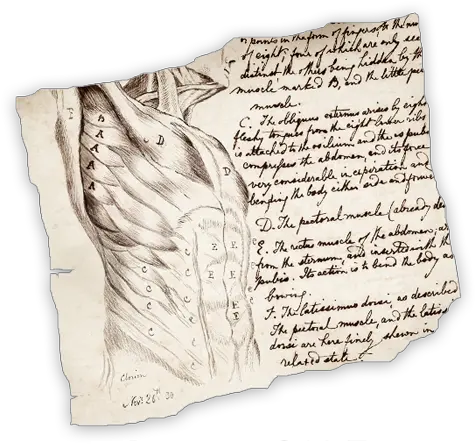 or points in the form of fingers to the nu
of eight, four of which are only see
distinct the others being hidden by th
muscle marked B, and the little pec
muscle.
C. The obliquus externus arises by eight
fleshy tongues from the eight lower ribs
is attached to the os ilium and the os pubis
compresses the abdomen and its force
very considerable in expiration, and
bending the body either side and forwa
D. The pectoral muscle (already de
E. The rectus muscle of the abdomen, ar
from the sternum, and inserted into the
pubis. Its action is to bend the body as
bowing.
F. The latissimus dorsi, as described
The pectoral muscle, and the latiss
dorsi are here finely shewn in
relaxed state.
B
A
A
A
A
D
D
E
E
E
E
E
E
C
C
C
C
C
C
C
Nov. 26th 30